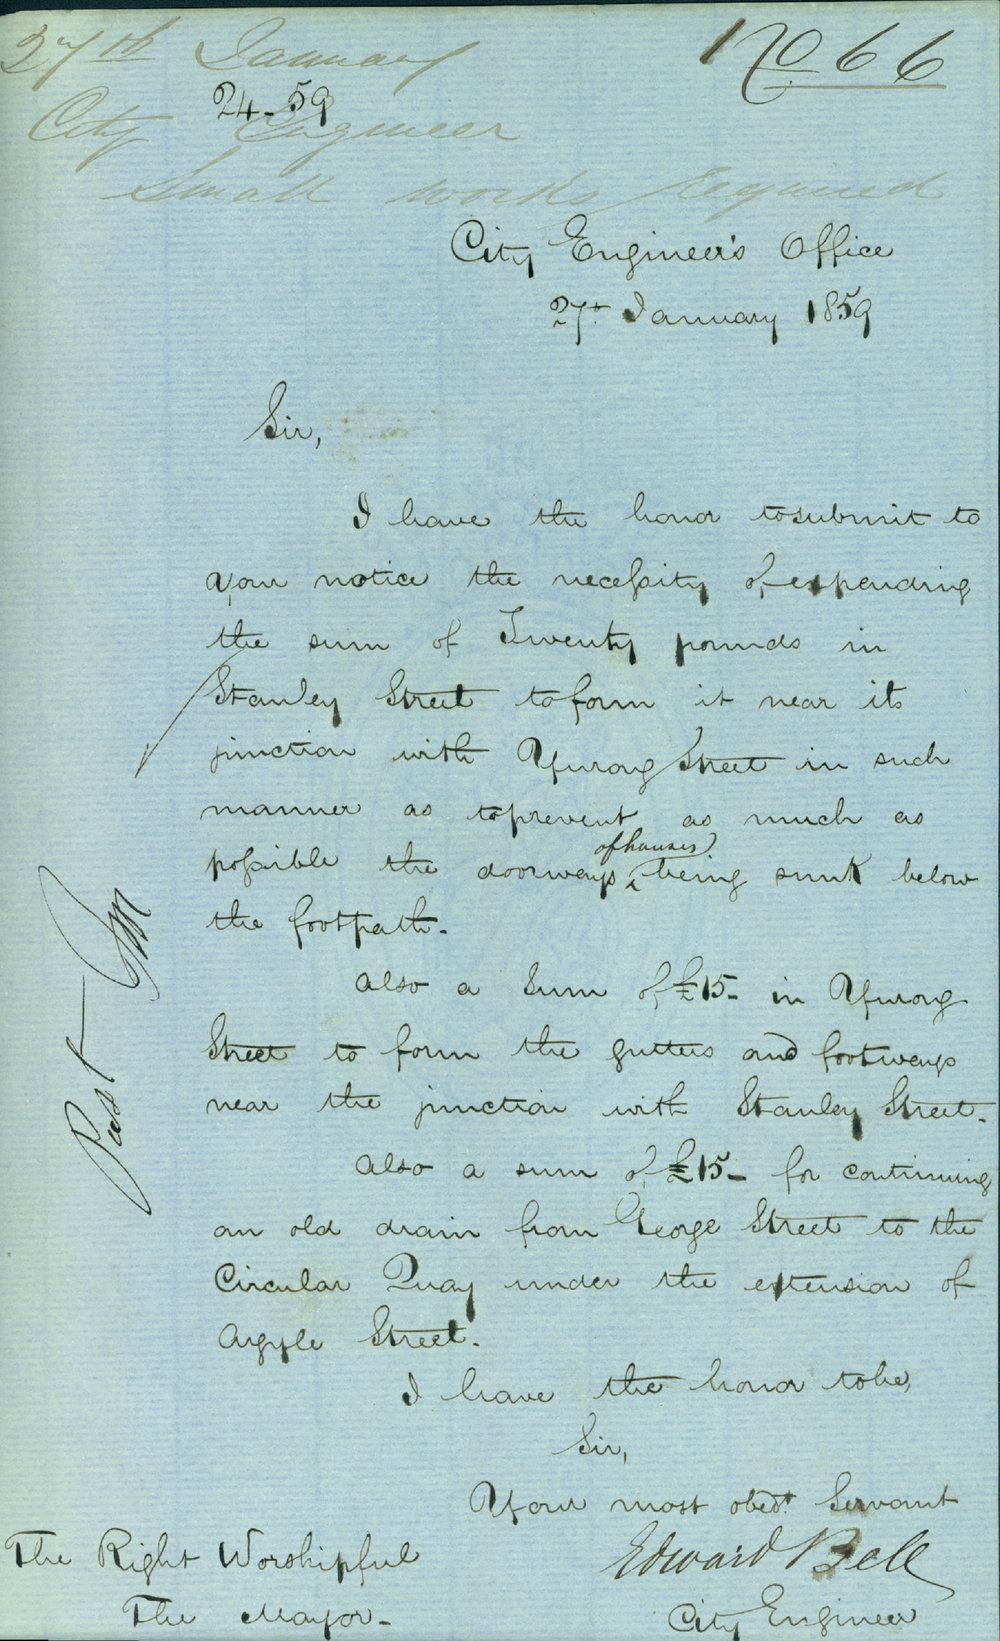 27th January
No 66
24-59
City Engineer
Small works required
City Engineer's Office
27th January 1859
Sir,
I have the honor to submit to
your notice the necessity of expending
the sum of Twenty pounds in
Stanley Street to form it near its
junction with Yurong Street in such
manner as to prevent as much as
possible the doorways of houses being sunk below
the footpath.
Also a Sum of £15- in Yurong
Street to form the gutters and footways
near the junction with Stanley Street.
Also a sum of £15- for continuing
an old drain from George Street to the
Circular Quay under the extension of
Argyle Street.
I have the honor to be,
Sir,
Your most obedt. Servant
Edward Bell
City Engineer
The Right Worshipful
The Mayor-